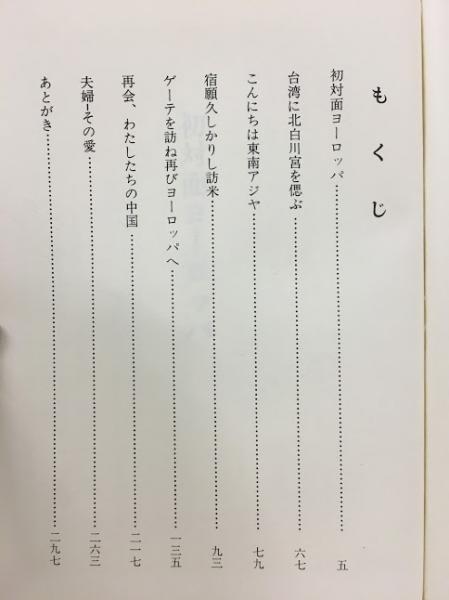 もくじ
初対面ヨーロッパ……五
台湾に北白川宮を偲ぶ……六七
こんにちは東南アジヤ……七九
宿願久しかりし訪米……九三
ゲーテを訪ね再びヨーロッパへ……一三五
再会、わたしたちの中国……二一七
夫婦―その愛……二六三
あとがき……二九七